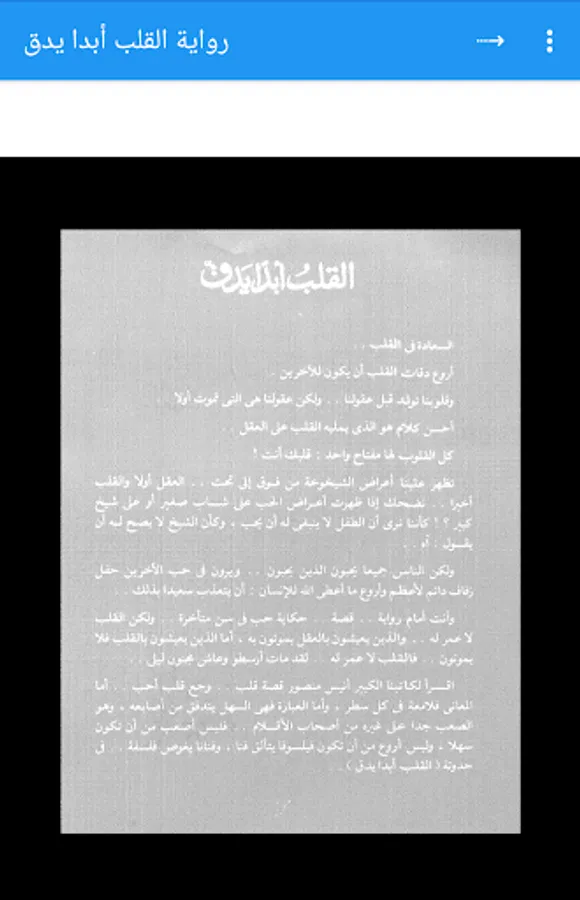 رواية القلب أبدا يدق
القلب أبدا يدق
السعادة فى القلب . .
أروع دقات القلب أن يكون للآخرين .
وقلوبنا تولد قبل عقولنا . . ولكن عقولنا هى التى تموت أولا . .
أحسن كلام هو الذى يمليه القلب على العقل . .
كل القلوب لها مفتاح واحد : قلبك أنت !
تظهر علينا أعراض الشيخوخة من فوق إلى تحت . . العقل أولا والقلب
أخيرا . . نضحك إذا ظهرت أعراض الحب على شباب صغير أو على شيخ
كبير ؟ ! كأننا نرى أن الطفل لا ينبغى له أن يحب ، وكأن الشيخ لا يصح له أن
يقول : آه . .
ولكن الناس جميعا يحبون الذين يحبون . . ويرون فى حب الآخرين حفل
زفاف دائم لأعظم وأروع ما أعطى الله للإنسان : أن يتعذب سعيدا بذلك . .
وأنت أمام رواية . . قصة . . حكاية حب فى سن متأخرة . . ولكن القلب
لا عمر له . . والذين يعيشون بالعقل يموتون به ، أما الذين يعيشون بالقلب فلا
يموتون . . فالقلب لا عمر له . . لقد مات أرسطو وعاش مجنون ليلى . .
اقرأ لكاتبنا الكبير أنيس منصور قصة قلب . . وجع قلب أحب . . أما
المعانى فلامعة فى كل سطر ، وأما العبارة فهى السهل يتدفق من أصابعه ، وهو
الصعب جدا على غيره من أصحاب الأقلام . . فليس أصعب من أن تكون
سهلا ، وليس أروع من أن تكون فيلسوفا يتألق فنا ، وفنانا يغوص فلسفة . . فى
حدوتة ( القلب أبدا يدق ) . .